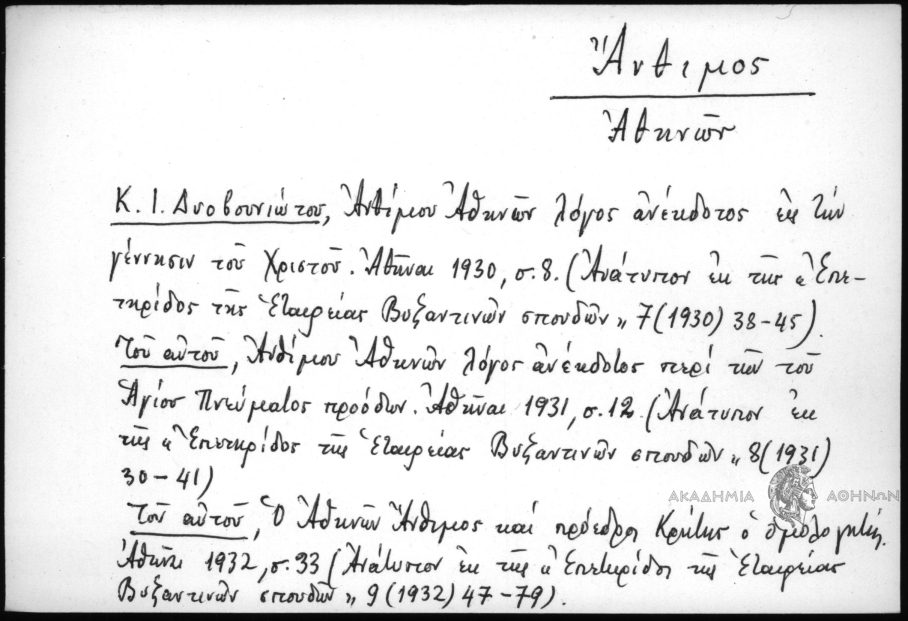 Ἄνθιμος
Ἀθηνῶν
Κ. Ι. Δυοβουνιώτου, Ἀνθίμου Ἀθηνῶν λόγος ἀνέκδοτος εἰς τὴν
γέννησιν τοῦ Χριστοῦ. Ἀθῆναι 1930, σ. 8. (Ἀνάτυπον ἐκ τῆς « Ἐπε-
τηρίδος τῆς Ἑταιρείας Βυζαντινῶν σπουδῶν » 7 (1930) 38-45).
Τοῦ αὐτοῦ, Ἀνθίμου Ἀθηνῶν λόγος ἀνέκδοτος περὶ τῶν τοῦ
Ἁγίου Πνεύματος προόδων. Ἀθῆναι 1931, σ. 12. (Ἀνάτυπον ἐκ
τῆς « Ἐπετηρίδος τῆς Ἑταιρείας Βυζαντινῶν σπουδῶν » 8 (1931)
30-41)
Τοῦ αὐτοῦ, Ὁ Ἀθηνῶν Ἄνθιμος καὶ πρόεδρος Κρήτης ὁ ὁμολογητής.
Ἀθῆναι 1932, σ. 33 (Ἀνάτυπον ἐκ τῆς « Ἐπετηρίδος τῆς Ἑταιρείας
Βυζαντινῶν σπουδῶν » 9 (1932) 47-79).
ΑΚΑΔΗΜΙΑ ΑΘΗΝΩΝ